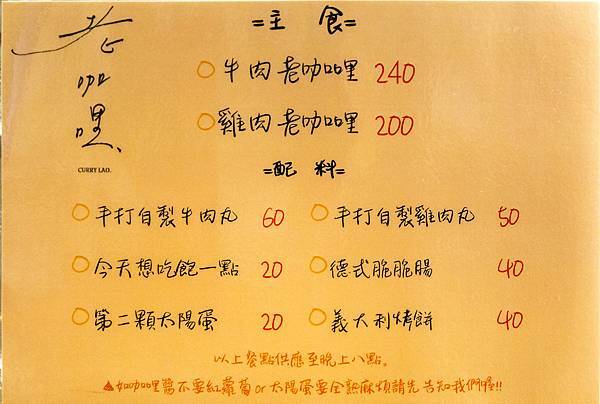 老咖哩、
CURRY LAO.
=主 食=
牛肉老咖哩 240
雞肉老咖哩 200
=配 料=
手打自製牛肉丸 60 手打自製雞肉丸 50
今天想吃飽一點 20 德式脆脆腸 40
第二顆太陽蛋 20 義大利烤餅 40
以上餐點供應至晚上八點。
▲如咖哩醬不要紅蘿蔔or太陽蛋要全熟麻煩請先告知我們喔!!